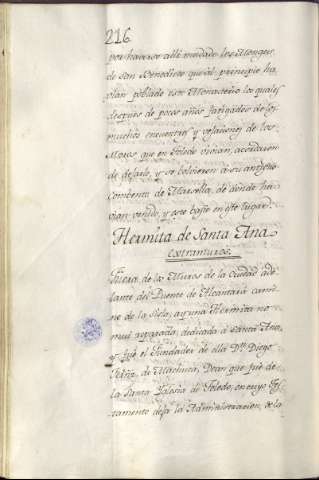 216
por haverse allí mudado los Monges
de San Benedicto que al principio ha
vían poblado este Monasterio los quales
despues de pocos años fatigados de los
muchos encuentros y vejaciones de los
Moros que en Toledo vivian, acordaron
de dejarlo, y se bolvieron a su antiguo
Combento de Marsella, de donde ha
vian venido, y este baste en este lugar.
Hermita de Santa Ana
extramuros.
Fuera de los Muros de la Ciudad ade
lante del Puente de Alcantara cami
no de la Sisla, ay una Hermita no
mui apartada, dedicada a Santa Ana,
y fue el Fundador de ella Dn. Diego
de Machuca, Dean que fue de
la Santa Yglesia de Toledo, en cuyo Tes
tamento deja la Administracion, de la